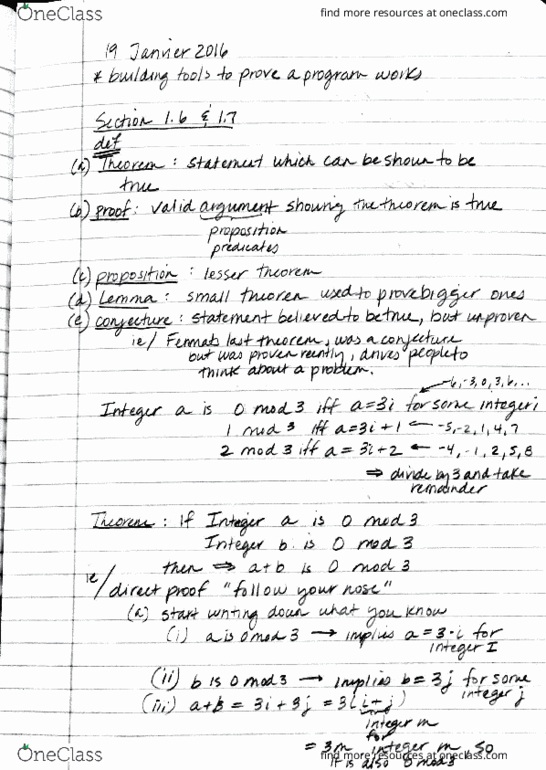 OneClass
find more resources at oneclass.com
19 Janvier 2016
* building tools to prove a program works
Section 1.6 & 1.7
def
(a) Theorem : statement which can be shown to be
true
(b) proof : valid argument showing the theorem is true
proposition
predicates
(c) proposition : lesser theorem
(d) Lemma : small theorem used to prove bigger ones
(e) conjecture : statement believed to be true, but unproven
ie/ Fermats last theorem, was a conjecture
but was proven recently, drives people to
think about a problem.
-6, -3, 0, 3, 6, ...
Integer a is 0 mod 3 iff a=3i for some integer i
1 mod 3 iff a=3i+1 ← -5, -2, 1, 4, 7
2 mod 3 iff a= 3i+2 ← -4, -1, 2, 5, 8
⇒ divide by 3 and take
remainder
Theorem : if Integer a is 0 mod 3
Integer b is 0 mod 3
then ⇒ a+b is 0 mod 3
ie/ direct proof "follow your nose"
(a) start writing down what you know
(i) a is 0 mod 3 → implies a = 3·i for
integer I
(ii) b is 0 mod 3 → implies b = 3j for some
integer j
(iii) a+b = 3i + 3j = 3(i+j)
integer m
for
= 3m integer m, so
it is also 0 mod 3
OneClass
find more resources at oneclass.com